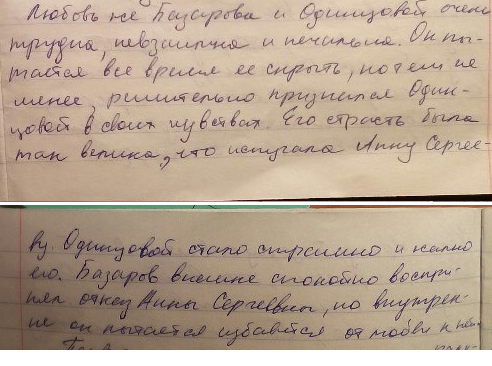 Любовь же Базарова и Одинцовой очень
трудна, невзаимна и печальна. Он пы-
тается все время ее скрыть, но тем не
менее, решительно признался Один-
цовой в своих чувствах. Его страсть была
так велика, что испугала Анну Сергее-
ву. Одинцовой стало страшно и жалко
его. Базаров внешне спокойно воспри-
нял отказ Анны Сергеевны, но внутрен-
не он пытается избавится от любви к ней